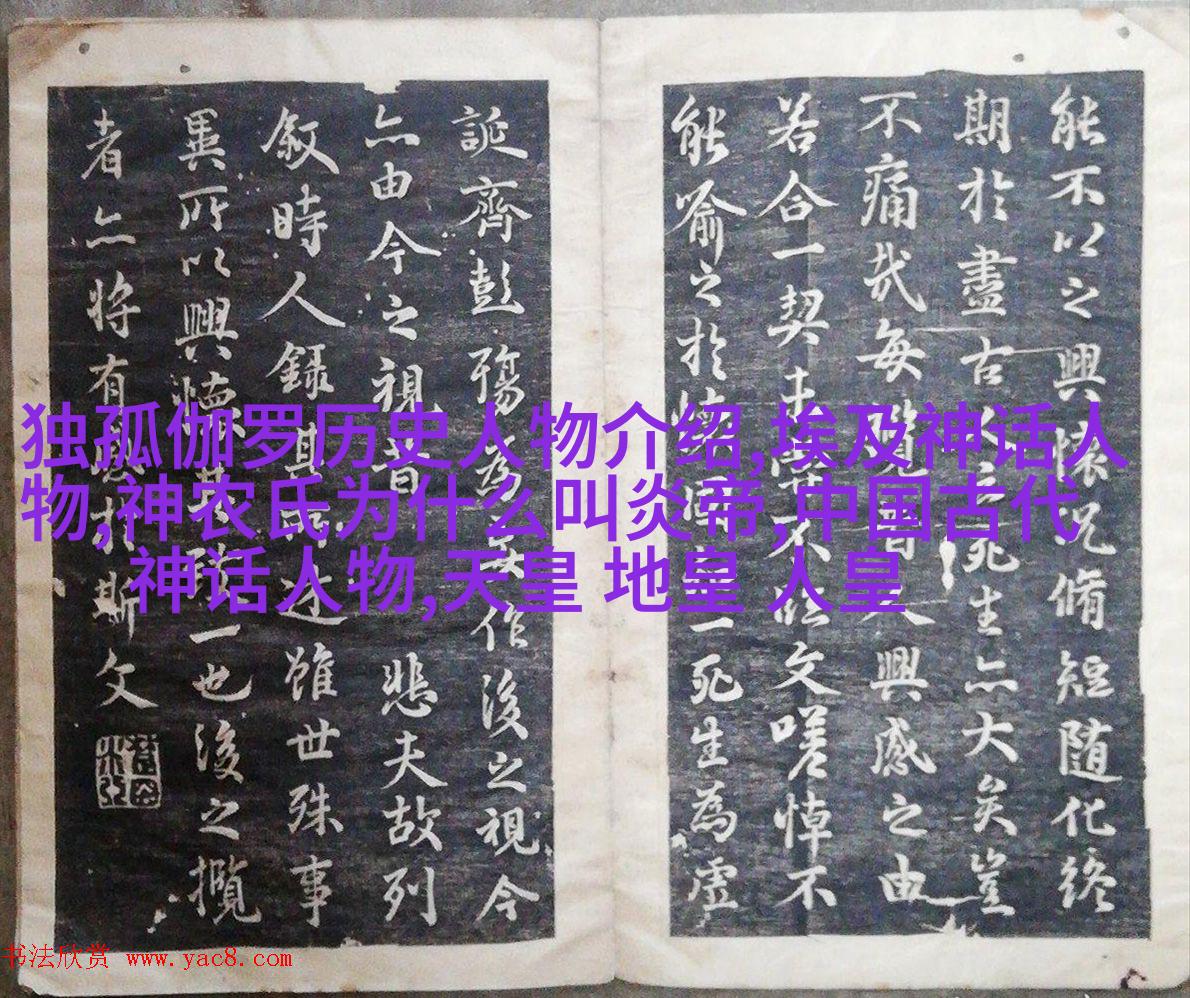 能不以之興懷况脩短随化終
期於盡古人之死生亦大矣豈
不痛哉每覽昔人興感之由
若合一契未嘗不臨文嗟悼不
能喻之於懷固知一死生為虛
誕齊彭殤為妄作後之視今
亦由今之視昔悲夫故列
敘時人錄其所述雖世殊事
異所以興懷其致一也後之攬
者亦将有感於斯文
独孤伽罗历史人物介绍,埃及神话人
物,神农氏为什么叫炎帝,中国古代
神话人物,天皇 地皇 人皇
书法欣赏 www.yac8.com